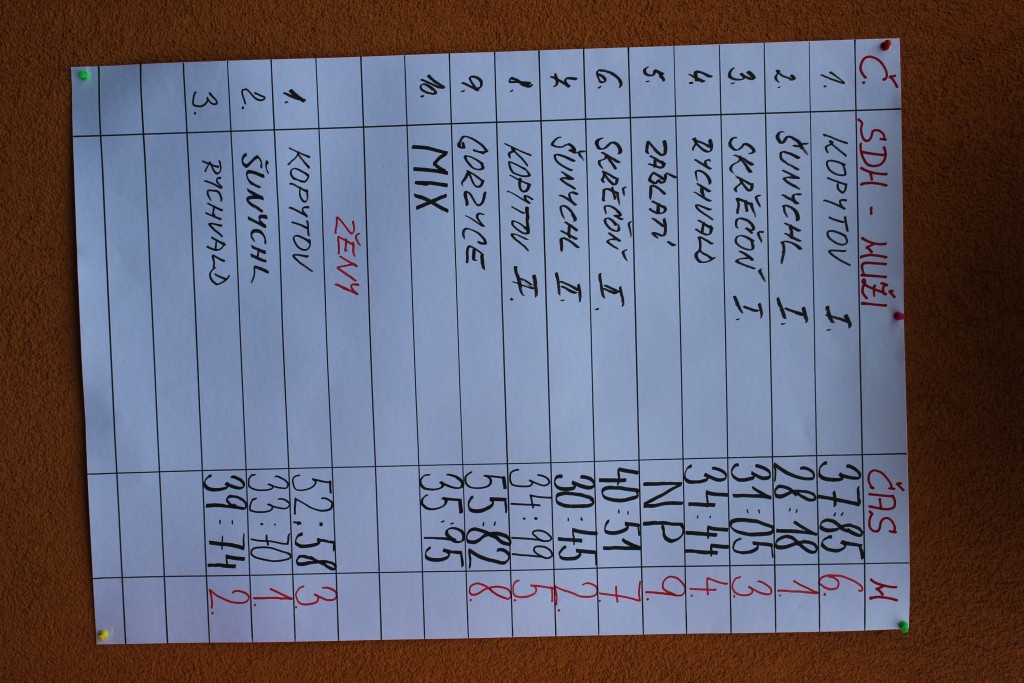 Č. SDH - MUŽI ČAS M
1. KOPYTOV I. 37:85 6.
2. ŠUNYCHL I. 28:18 1.
3. SKŘEČOŇ I. 31:05 3
4. RYCHVALD 34:44 4.
5. ZÁBLATÍ NP 9.
6. SKŘEČOŇ II. 40:51 7.
7. ŠUNYCHL II. 30:45 2.
8. KOPYTOV II. 34:99 5.
9. GORZYCE 55:82 8.
10. MIX 35:95
ŽENY
1. KOPYTOV 52:58 3.
2. ŠUNYCHL 33:70 1.
3. RYCHVALD 39:74 2.